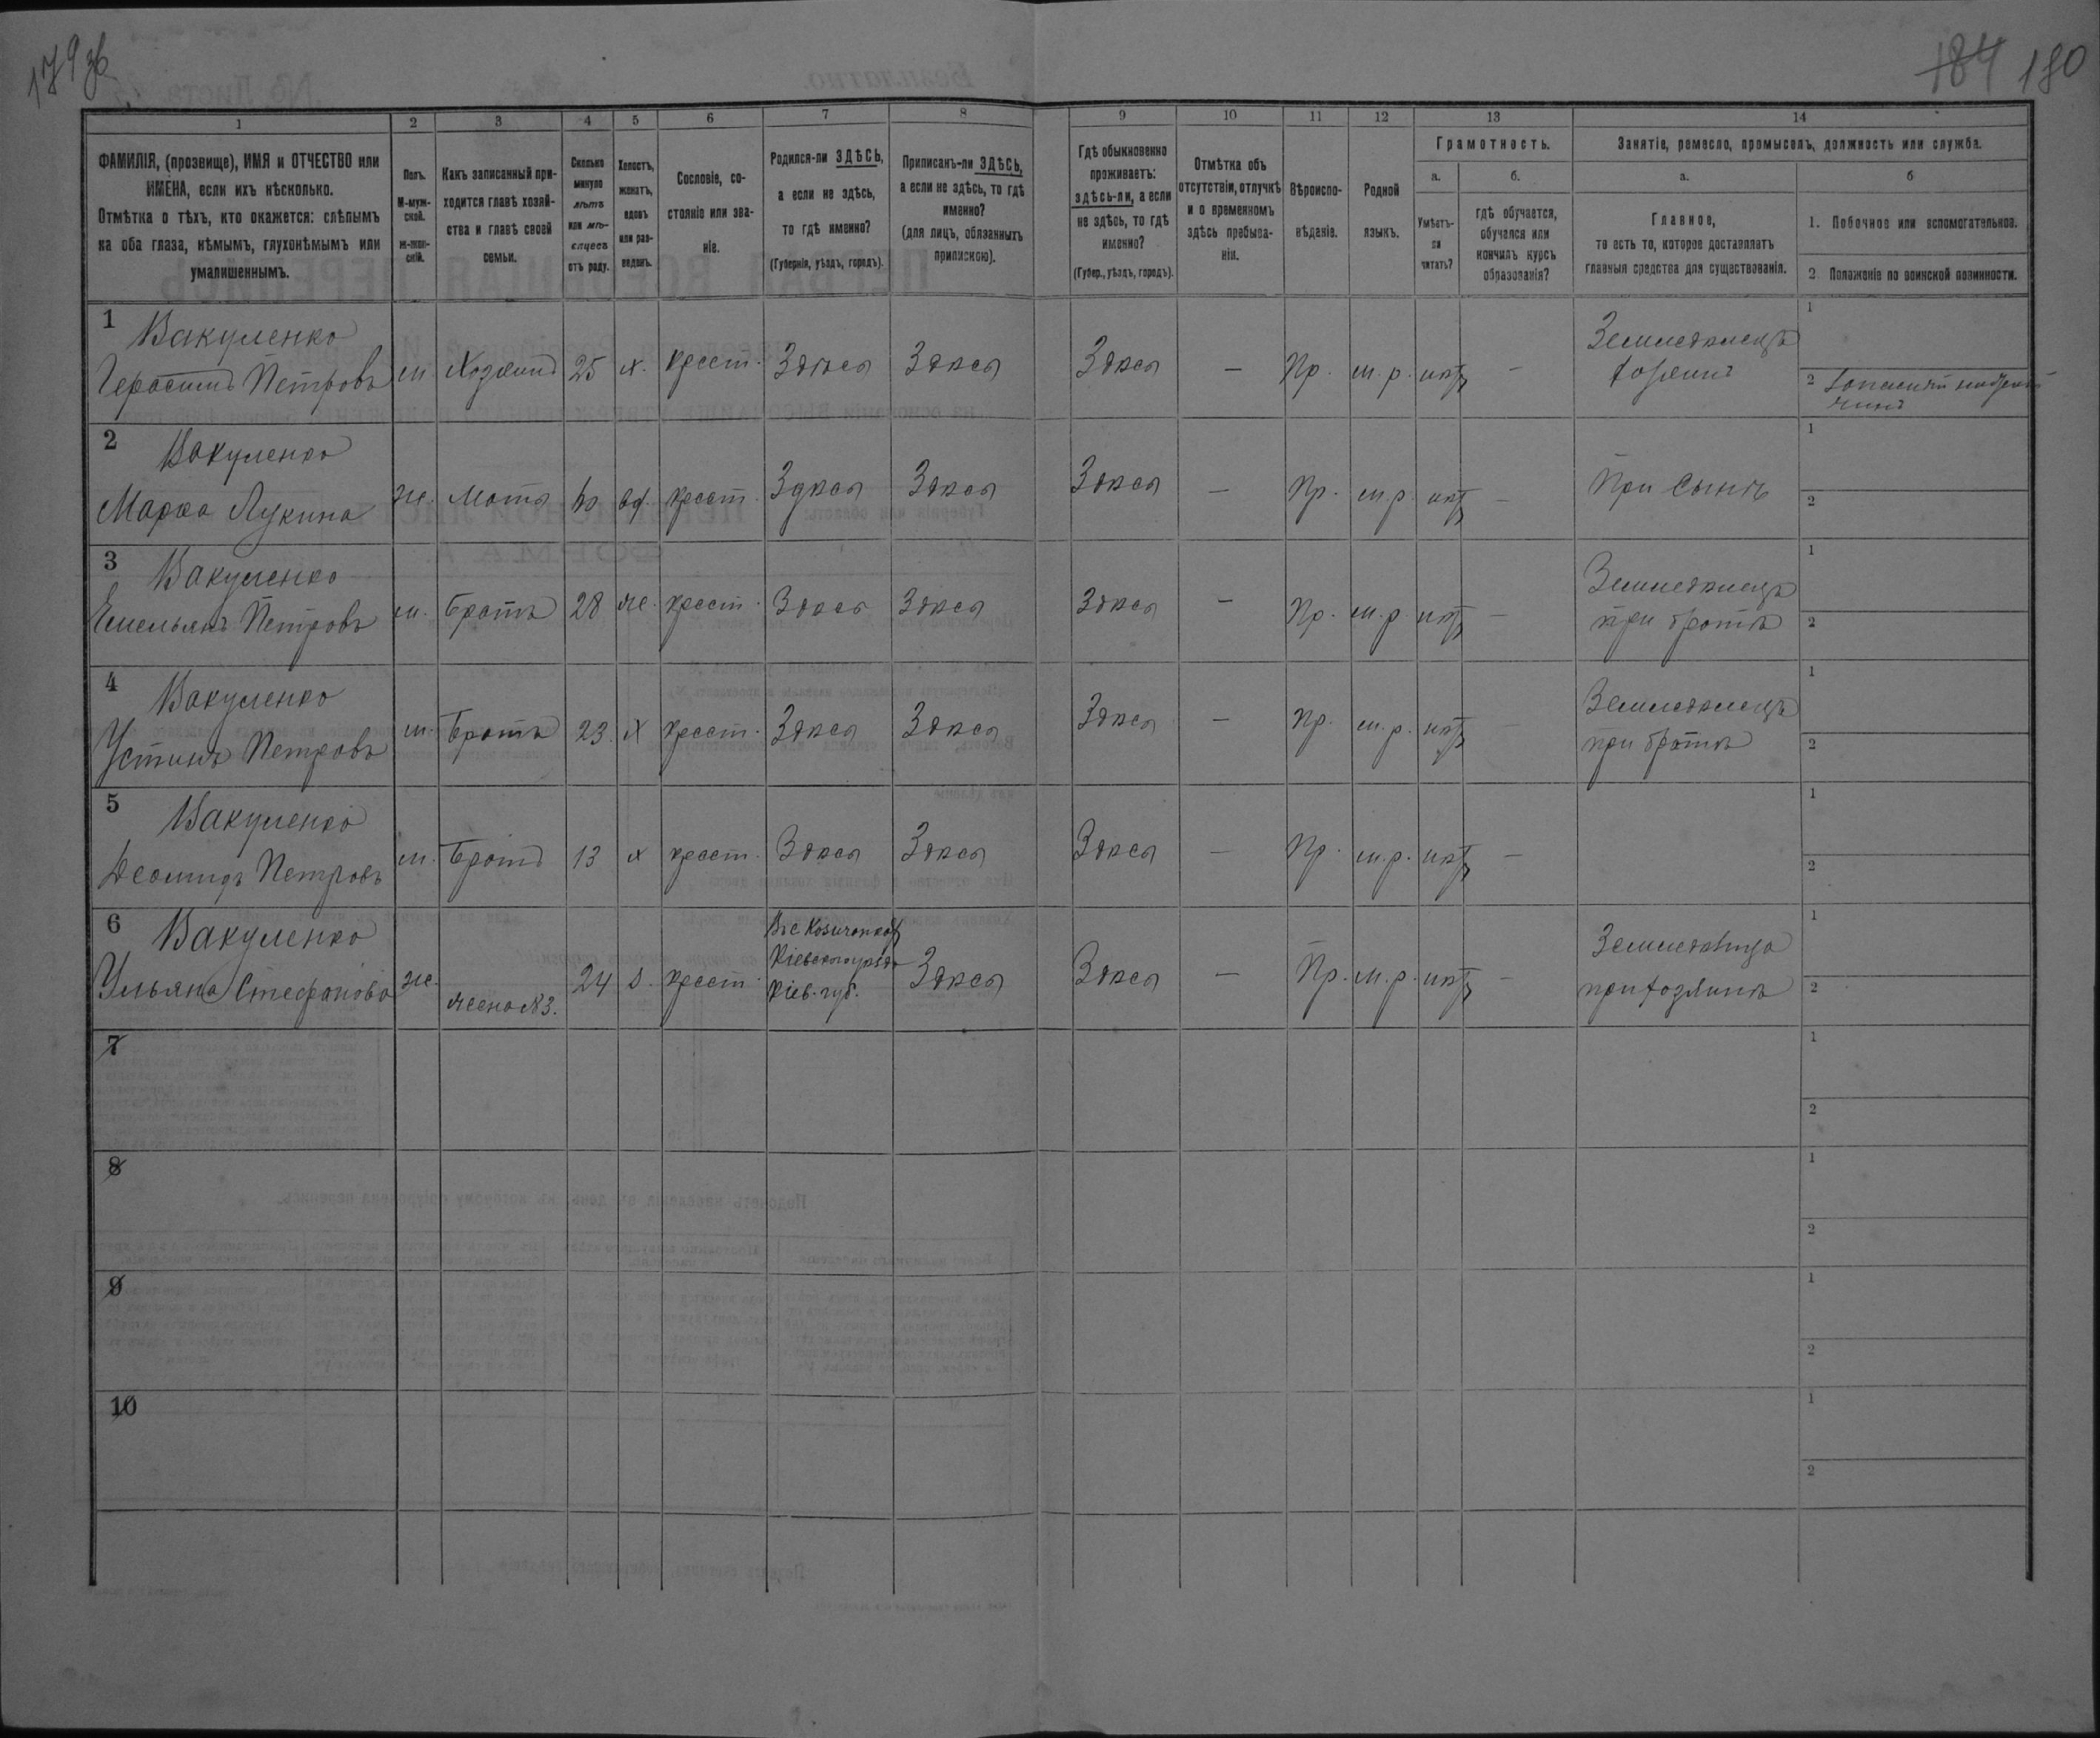 179 зв
184 180
1
2
3
4
5
6
7
8
9
10
11
12
13
14
ФАМИЛІЯ, (прозвище), ИМЯ и ОТЧЕСТВО или
ИМЕНА, если ихъ нѣсколько.
Отмѣтка о тѣхъ, кто окажется: слѣпымъ
на оба глаза, нѣмымъ, глухонѣмымъ или
умалишеннымъ.
Полъ.
М-муж-
ской.
ж-жен-
скій.
Какъ записанный при-
ходится главѣ хозяй-
ства и главѣ своей
семьи.
Сколько
минуло
лѣтъ
или мѣ-
сяцевъ
отъ роду.
Холостъ,
женатъ,
вдовъ
или раз-
веденъ.
Сословіе, со-
стояніе или зва-
ніе.
Родился-ли ЗДѢСЬ,
а если не здѣсь,
то гдѣ именно?
(Губернія, уѣздъ, городъ).
Приписанъ-ли ЗДѢСЬ,
а если не здѣсь, то гдѣ
именно?
(для лицъ, обязанныхъ
припискою).
Гдѣ обыкновенно
проживаетъ:
здѣсь-ли, а если
не здѣсь, то гдѣ
именно?
(Губер., уѣздъ, городъ).
Отмѣтка объ
отсутствіи, отлучкѣ
и о временномъ
здѣсь пребыва-
ніи.
Вѣроиспо-
вѣданіе.
Родной
языкъ.
Грамотность.
а.
Умѣетъ-
ли
читать?
б.
гдѣ обучается,
обучался или
кончилъ курсъ
образованія?
Занятіе, ремесло, промыселъ, должность или служба.
а.
Главное,
то есть то, которое доставляетъ
главныя средства для существованія.
б
1. Побочное или вспомогательное.
2 Положеніе по воинской повинности.
1
Вакуленко
Герасимъ Петровъ
м
Хозяинъ
25
х.
крест.
Здѣсь
Здѣсь
Здѣсь
—
Пр.
м. р.
нѣтъ
-
Земледѣлецъ
хозяинъ
1
2 Запасный нижній
чинъ
2
Вакуленко
Марѳа Лукина
ж.
Мать
вд.
крест.
Здѣсь
Здѣсь
Здѣсь
—
Пр.
м. р.
нѣтъ
-
При сынѣ
1
2
3
Вакуленко
Емельянъ Петровъ
м.
Братъ
28
же.
крест.
Здѣсь
Здѣсь
Здѣсь
—
Пр.
м. р.
нѣтъ
—
Земледѣлецъ
при братѣ
1
2
4
Вакуленко
Устинъ Петровъ
м.
Братъ
23.
х
крест.
Здѣсь
Здѣсь
Здѣсь
—
Пр.
м. р.
нѣтъ
-
Земледѣлецъ
при братѣ
1
2
5
Вакуленко
Деомидъ Петровъ
м.
Братъ
13
х
крест.
Здѣсь
Здѣсь
Здѣсь
—
Пр.
м. р.
нѣтъ
—
1
2
6
Вакуленко
Ульяна Стефанова
ж.
жена №3.
24
з.
крест.
Кіевскаго уѣзда
Кіев. губ.
Здѣсь
Здѣсь
—
Пр.
м. р.
нѣтъ
-
Земледѣлица
при хозяинѣ
1
2
7
1
2
8
1
2
9
1
2
10
1
2